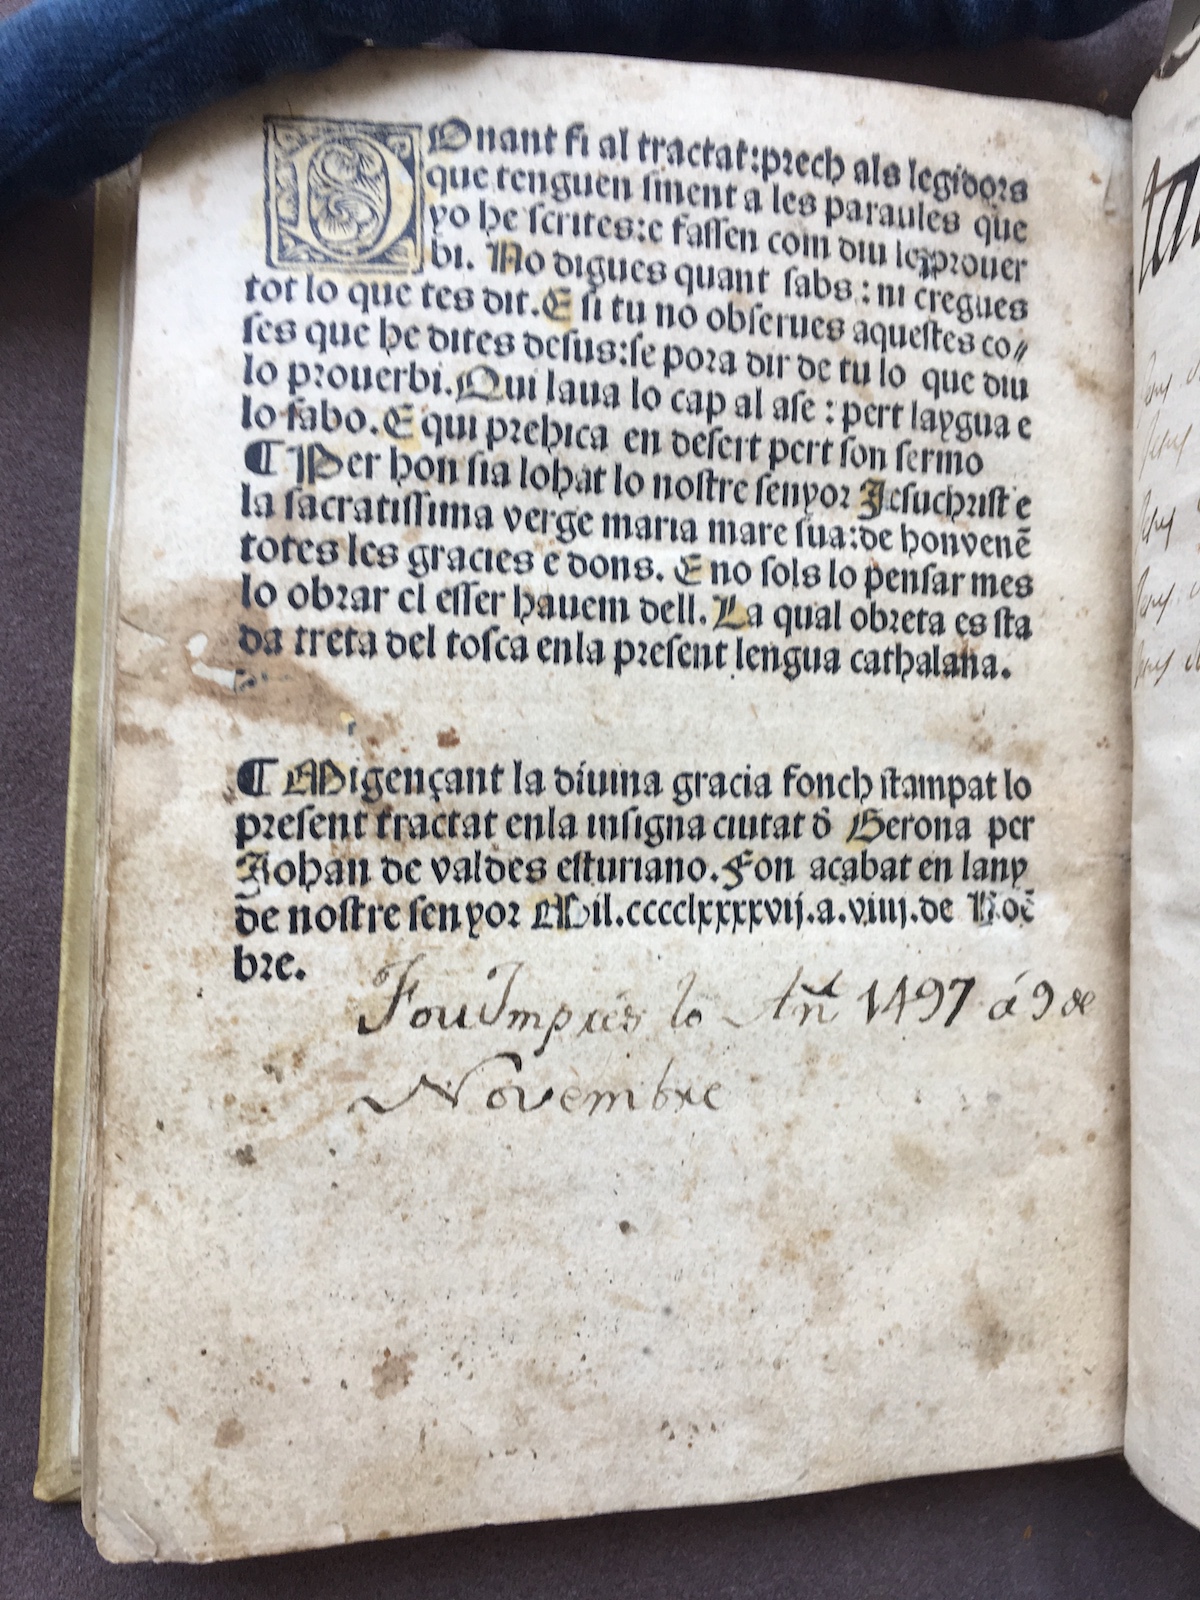 DOnant fi al tractat:prech als legidors
que tenguen sment a les paraules que
yo he scrites:e fassen com diu lo prouer
bi. No digues quant sabs : ni cregues
tot lo que tes dit. E si tu no obserues aquestes co⸗
ses que he dites desus:se pora dir de tu lo que diu
lo prouerbi. Qui laua lo cap al ase : pert laygua e
lo sabo. E qui prehica en desert pert son sermo
¶ Per hon sia lohat lo nostre senyor Jesuchrist e
la sacratissima verge maria mare sua:de honvenē
totes les gracies e dons. E no sols lo pensar mes
lo obrar el esser hauem dell. La qual obreta es sta
da treta del tosca enla present lengua cathalana.
¶ Migençant la diuina gracia fonch stampat lo
present tractat enla insigna ciutat d̄ Gerona per
Johan de valdes esturiano. Fon acabat en lany
de nostre senyor Mil.cccclxxxxvij.a.viiij.de Noē
bre.
Fou Imprés lo Añ 1497 á 9 de
Novembre